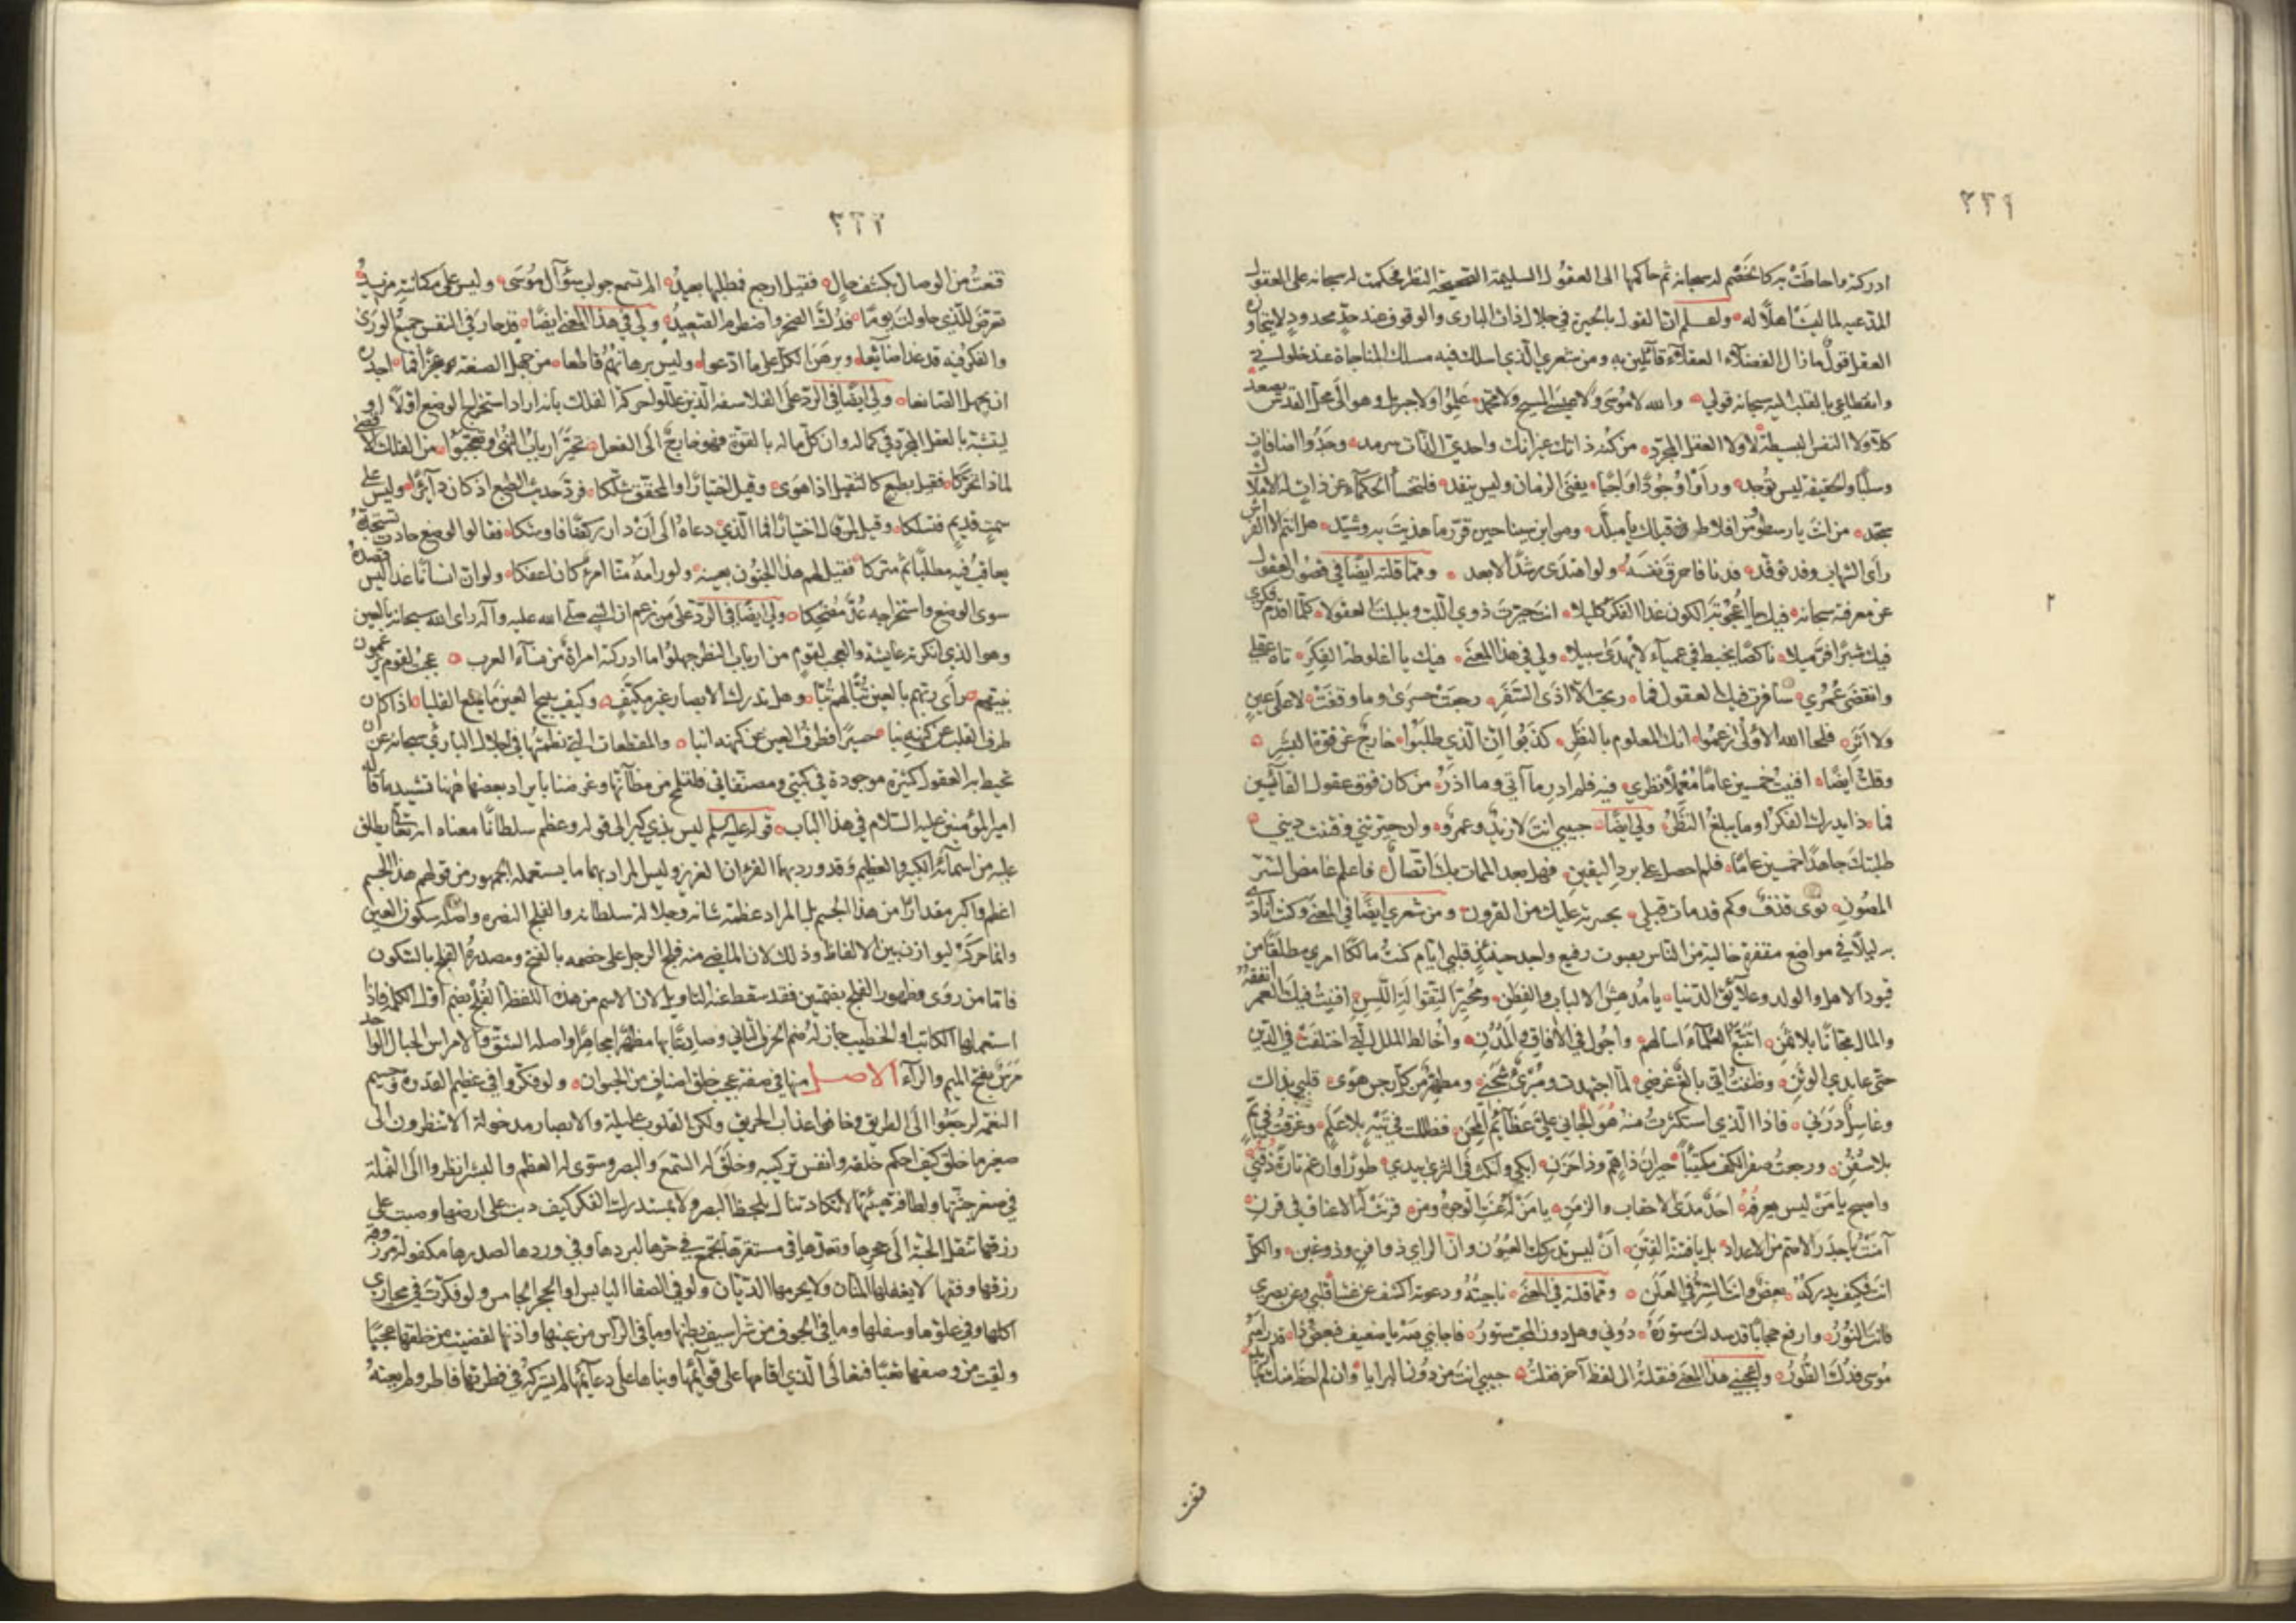 ٢٣٦
ادركته واحاطت به كالخصم له سبحانه ثم حاكمها الى العقول السليمة الصحيحة النظر فحكمت له سبحانه على العقول
المدعيه لما ليست اهلا له ولعلم ان القول بالحيرة في جلال ذات البارى والوقوف عند حد محدود لا يتجاوزه
العقل قول ما زال الفضلاء العقلاء قائلين به ومن شعري الذي اسلك فيه مسلك المناجاة عند خلواتي
وانقطاعي بالقلب اليه سبحانه قولي والله لا موسى ولا عيسى المسيح ولا محمد علموا ولا جبريل وهو الى محل القدس يصعد
كلا ولا النفس البسيطة لا ولا العقل المجرد من كنه ذاتك غير انك واحدي الذات سرمد وجدوا اضافات
وسلبا والحقيقة ليس توجد ورأوا وجودا واجبا يفنى الزمان وليس ينفد فلتخسأ الحكماء عن ذات له الافلاك
تسجد من انت يا رسطو ومن افلاطون قبلك يا مبلد ومن ابن سينا حين قرر ما هذيت به وشيد هل انتم الا الفراش
رأى الشهاب وقد توقد فدنا فاحرق نفسه ولو اهتدى رشدا لابعد ومما قلته ايضا في قصور العقول
عن معرفته سبحانه فيك يا اعجوبة الكون غدا الفكر كليلا انت حيرت ذوي اللب وبلبلت العقولا كلما اقدم فكري
فيك شبرا فر ميلا ناكصا يخبط في عمياء لا يهدى سبيلا ولي في هذا المعنى فيك يا اغلوطة الفكر تاه عقلي
وانقضى عمري سافرت فيك العقول فما ربحت الا اذى السفر رجعت حسرى وما وقفت لا على عين
ولا اثر فلحا الله الاولى زعموا انك المعلوم بالنظر كذبوا ان الذي طلبوا خارج عن قوة البشر
وقلت ايضا افنيت خمسين عاما معملا نظري فيه فلم ادر ما آتي وما اذر من كان فوق عقول القائسين
فماذا يدرك الفكر او ما يبلغ النظر ولي ايضا حبيبي انت لا زيد وعمرو وان حيرتني وفتنت ديني
طلبتك جاهدا خمسين عاما فلم احصل على برد اليقين فهل بعد الممات بك اتصال فاعلم غامض السر
المصون نوى قذف وكم قد مات قبلي بحسرته عليك من القرون ومن شعري ايضا في المعنى وكنت انادي
به ليلا في مواضع مقفرة خالية من الناس بصوت رفيع واجد حينئذ قلبي ايام كنت مالكا امري مطلقا من
قيود الاهل والولد وعلائق الدنيا يا مدهش الالباب والفطن ومحير التقوالة اللسن افنيت فيك العمر انفقه
والمال مجانا بلا ثمن اتتبع العلماء اسالهم واجول في الآفاق والمدن واخالط الملل التي اختلفت في الدين
حتى عابدي الوثن وظننت اني بالغ غرضي لما اجتهدت ومبرئ شجني ومطهر من كل رجس هوى قلبي بذاك
وغاسل درني فاذا الذي استكثرت منه هو الجاني علي عظائم المحن فظللت في تيه بلا علم وغرقت في يم
بلا سفن ورجعت صفر الكف مكتئبا حيران ذا هم وذا حزن ابكي وانكت في الثرى بيدي طورا وادعم تارة ذقني
واصيح يا من ليس يعرفه احد مدى الاحقاب والزمن يا من له عنت الوجوه ومن قرنت له الاعناق في قرن
آمنت يا جذر الاصم من الاعداد بل يا فتنة الفتن ان ليس تدركك العيون وان الراي ذو افن وذو غبن والكل
انت فكيف يدركه بعض وانت السر في العلن ومما قلته في المعنى ناجيته ودعوته اكشف عن غشا قلبي وعن بصري
فانت النور وارفع حجابا قد سدلت ستوره دوني وهل دون المحب ستور فاجابني صه يا ضعيف فبعض ذا قد رامه
موسى فدك الطور واعجبني هذا المعنى فنقلته الى لفظ آخر فقلت حبيبي انت من دون البرايا وان لم احظ منك بما اريد
قنعت
٢
٢٣٧
قنعت من الوصال بكشف حال فقيل ارجع فمطلبها بعيد الم تسمع جواب سؤال موسى وليس على مكانته مزيد
تعرض للذي حاولت يوما فدك الصخر واضطرم الصعيد ولي في هذا المعنى ايضا قد حار في النفس جميع الورى
والفكر فيه قد غدا ضائعا وبرهن الكل على ما ادعوا وليس برهانهم قاطعا من جهل الصنعة عجزا فما اجدره
ان يجهل الصانعا ولي ايضا في الرد على الفلاسفة الذين عللوا حركة الفلك بانه اراد استخراج الوضع اولا او
ليتشبه بالعقل المجرد في كماله وان كل ماله بالقوة فهو خارج الى الفعل تحير ارباب النهى وتعجبوا من الفلك الاقصى
لماذا تحركا فقيل بطبع كالثقيل اذا هوى وقيل اختيارا والمحقق شككا فرد حديث الطبع اذ كان دائرا وليس على
سمت قديم فتسلكا وقيل لمن قال اختيارا فما الذي دعاه الى ان دار ركضا فاوشكا فقالوا لوضع حادث يستجده
يعاقب فيه مطلبا ثم متركا فقيل لهم هذا الجنون بعينه ولو رامه منا امرؤ كان اعفكا ولو ان انسانا غدا ليس قصده
سوى الوضع واستخراجه عد مضحكا ولي ايضا في الرد على من زعم ان النبي صلى الله عليه وآله رأى الله سبحانه بالعين
وهو الذي انكرته عايشة والعجب لقوم من ارباب النظر جهلوا ما ادركته امرأة من نساء العرب عجبت لقوم يزعمون
نبيهم رأى ربهم بالعين تبا لهم تبا وهل تدرك الابصار غير مكيف وكيف يبيح العين ما يمنع القلبا اذا كان
طرف القلب عن كنهه نبا حسيرا فطرف العين عن كنهه انبا والمقطعات التي نظمتها في اجلال البارئ سبحانه عن ان
تحيط به العقول كثيرة موجودة في كتبي ومصنفاتي فلتلمح من مظانها وغرضنا بايراد بعضها ههنا تشييد ما قاله
امير المؤمنين عليه السلام في هذا الباب قوله عليه السلم ليس بذي كبر الى قوله وعظم سلطانا معناه انه تعالى يطلق
عليه من اسمائه الكبير والعظيم وقد ورد بهما القرءان العزيز وليس المراد بهما ما يستعمله الجمهور من قولهم هذا الجسم
اعظم واكبر مقدارا من هذا الجسم بل المراد عظمة شانه وجلالة سلطانه والفلج النصره واصله سكون العين
وانما حركه ليوازن بين الالفاظ وذلك لان الماضي منه فلج الرجل على خصمه بالفتح ومصدره الفلج بالسكون
فاما من روى وظهور الفلج بضمتين فقد سقط عنه التاويل لان الاسم من هذه اللفظة الفلج بضم اول الكلمة فاذا
استعملها الكاتب او الخطيب جاز له ضم الحرف الثاني وصادعا بها مظهرا مجاهرا واصله الشق والامراس الحبال الواحد
مرس بفتح الميم والراء الاصل منها في صفة عجيب خلق اصناف من الحيوان ولو فكروا في عظيم القدرة وجسيم
النعمة لرجعوا الى الطريق وخافوا عذاب الحريق ولكن القلوب عليلة والابصار مدخولة الا تنظرون الى
صغير ما خلق كيف احكم خلقه واتقن تركيبه وخلق له السمع والبصر وسوى له العظم والبشر انظروا الى النملة
في صغر جثتها ولطافة هيئتها لا تكاد تنال بلحظ البصر ولا بمستدرك الفكر كيف دبت على ارضها وصبت على
رزقها تنقل الحبة الى جحرها وتعدها في مستقرها تجمع في حرها لبردها وفي وردها لصدرها مكفولة برزقها مرزوقة
رزقها وفقها لا يغفلها المنان ولا يحرمها الديان ولو في الصفا اليابس او الحجر الجامس ولو فكرت في مجارى
اكلها وفي علوها وسفلها وما في الجوف من شراسيف بطنها وما في الراس من عينها واذنها لقضيت من خلقها عجبا
ولقيت من وصفها تعبا فتعالى الذي اقامها على قوائمها وبناها على دعائمها لم يشركه في فطرتها فاطر ولم يعنه